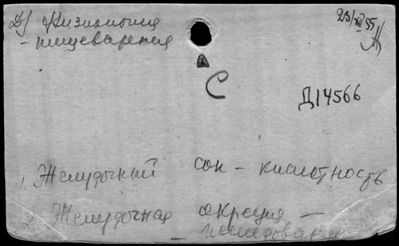 Д) Физиология
- пищеварения
23/XII 55
С
Д14566
Желудочный сок - кислотность
Желудочная секреция -
- исследования